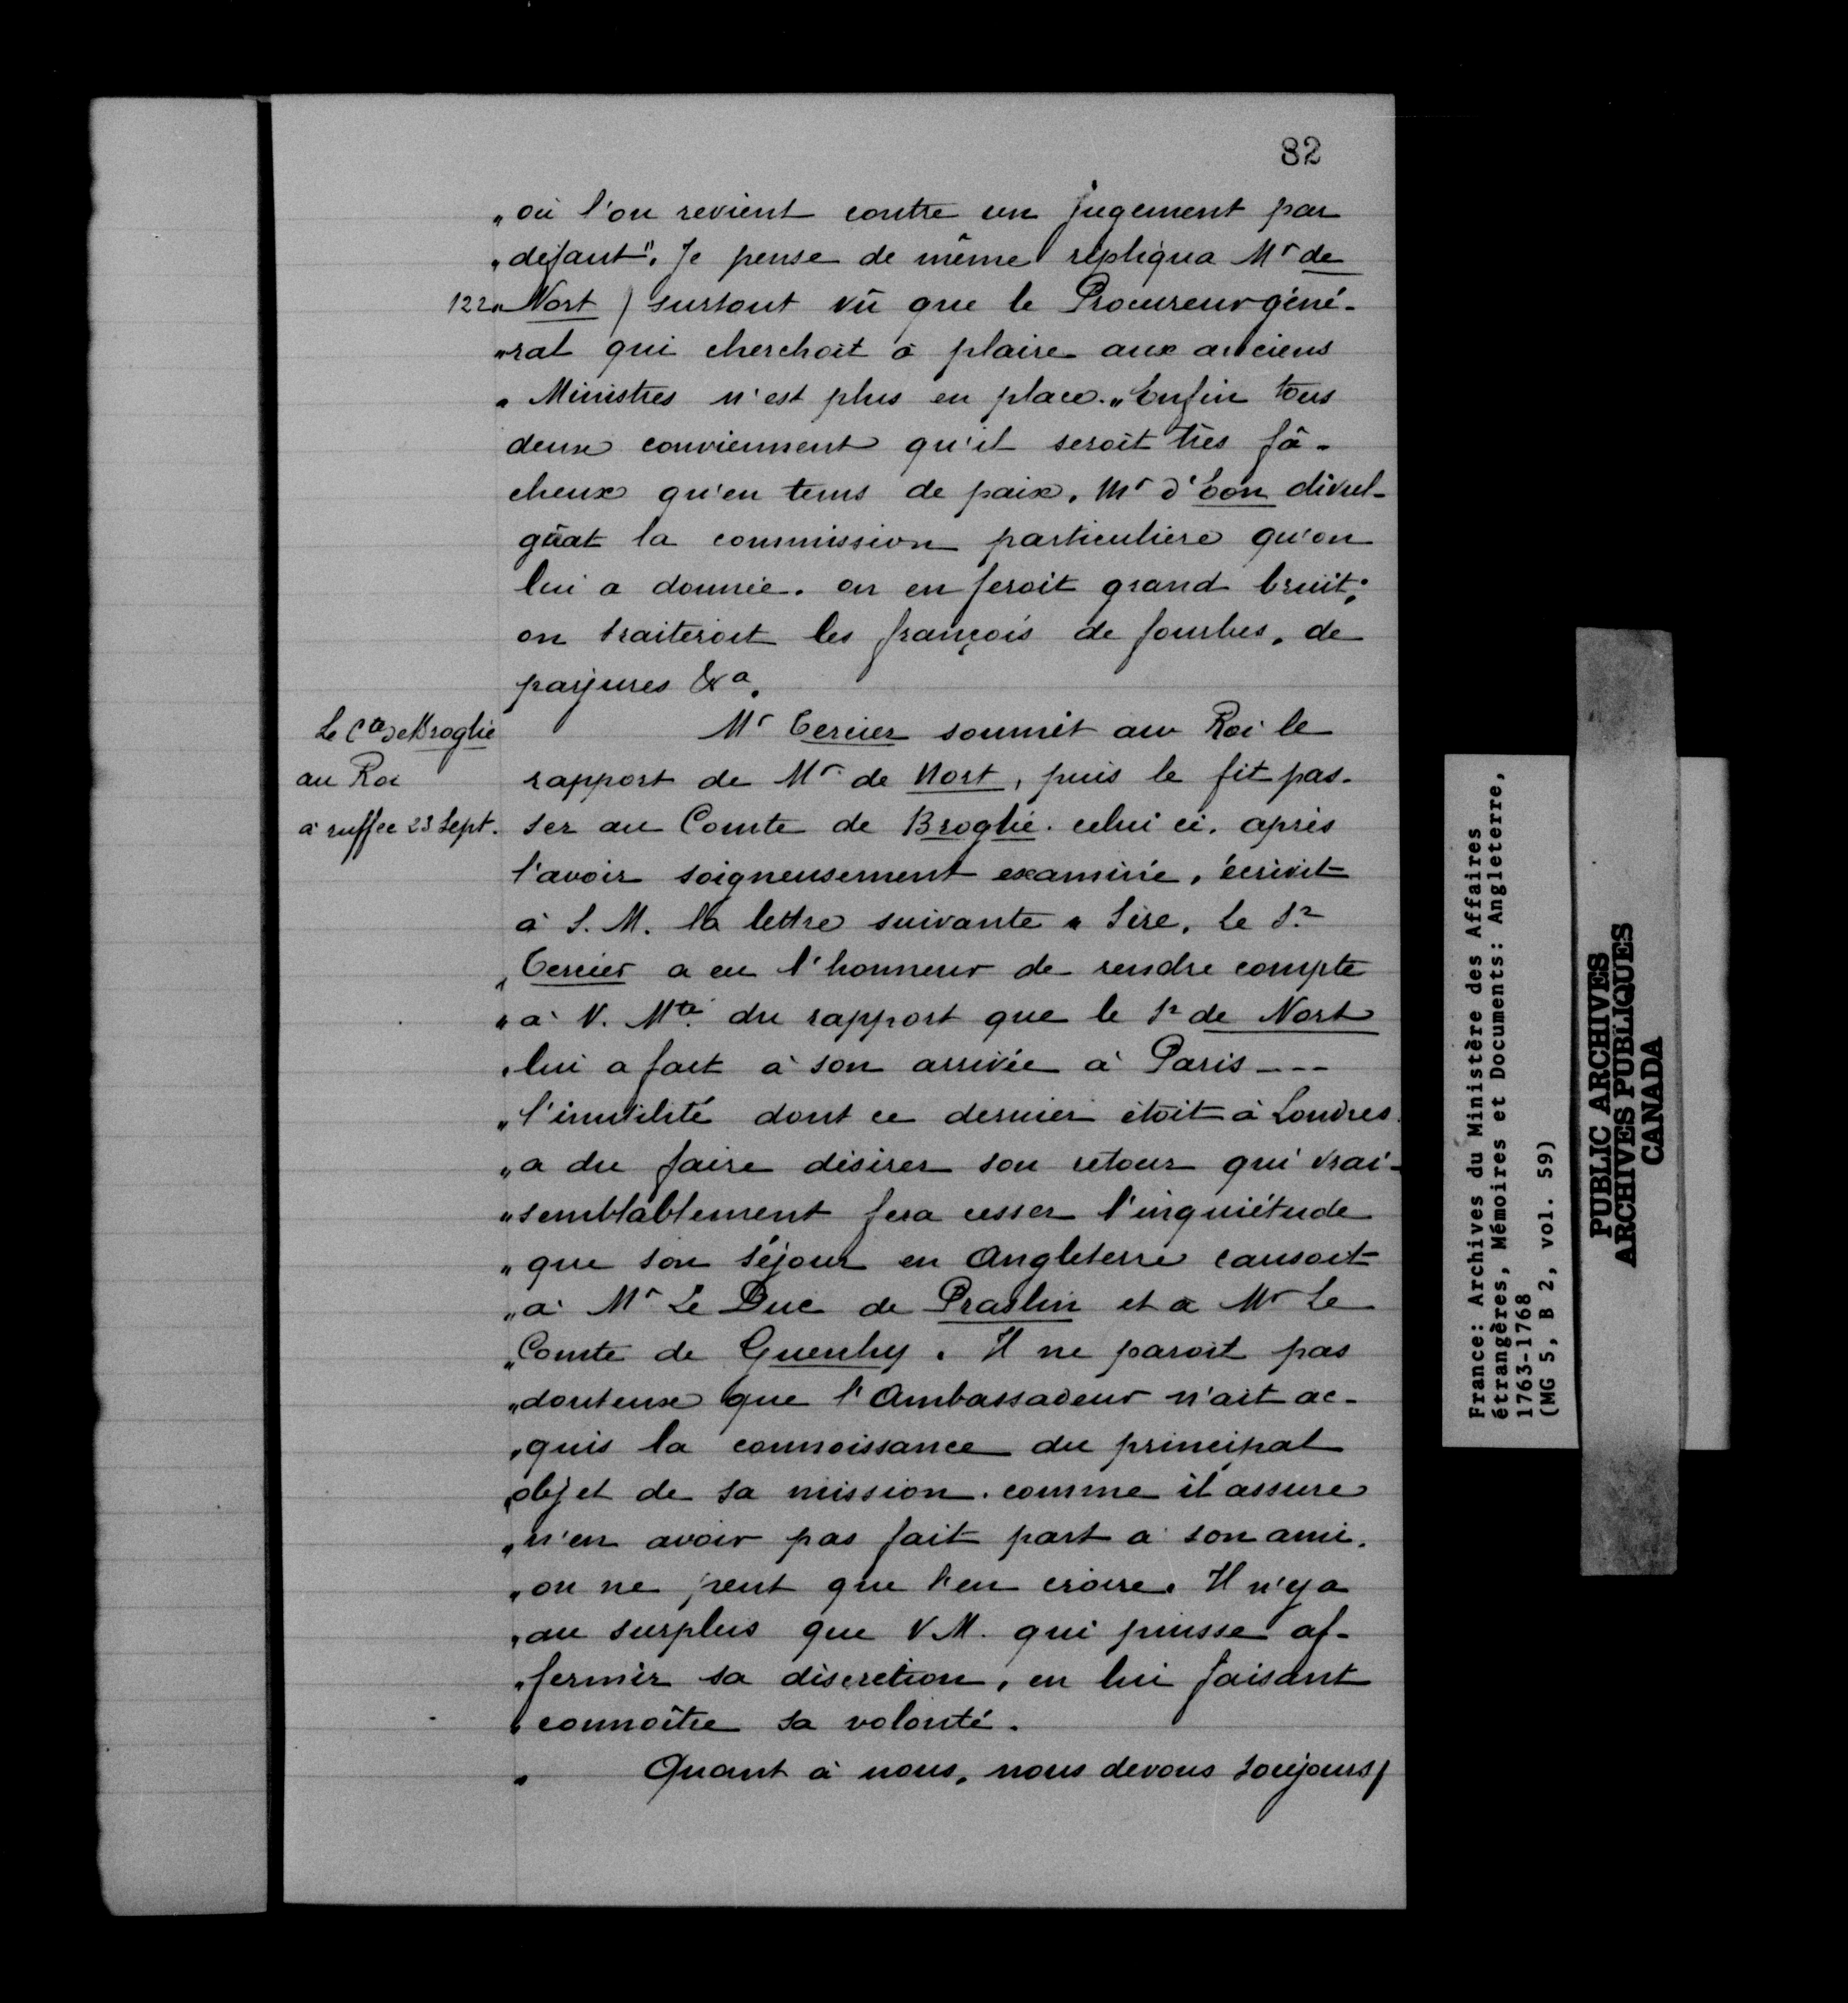 82
„ où l'on revient contre un jugement par
„ défaut". Je pense de même répliqua Mr de
122 „ Nort / surtout vû que le Procureur géné-
„ ral qui cherchoit à plaire aux anciens
„ Ministres n'est plus en place. „ Enfin tous
deux conviennent qu'il seroit très fâ-
cheux qu'en tems de paix, Mr d'Eon divul-
gûat la commission particulière qu'on
lui a donnée. on en feroit grand bruit;
on traiteroit les françois de fourbes, de
parjures &a.
Le Cte de Broglie
au Roi
à ruffec 23 Sept.
Mr Tercier soumit au Roi le
rapport de Mr de Nort, puis le fit pas-
ser au Comte de Broglie. celui ci, après
l'avoir soigneusement examiné, écrivit
à S. M. la lettre suivante „ Sire, Le Sr
„ Tercier a eu l'honneur de rendre compte
„ à V. Mté du rapport que le Sr de Nort
„ lui a fait à son arrivée à Paris ---
„ l'inutilité dont ce dernier étoit à Londres
„ a du faire désirer son retour qui vrai-
„ semblablement fera cesser l'inquiétude
„ que son séjour en Angleterre causoit
„ à Mr Le Duc de Praslin et à Mr Le
„ Comte de Guerchy. Il ne paroit pas
„ douteux que l'Ambassadeur n'ait ac-
„ quis la connoissance du principal
„ objet de sa mission. comme il assure
„ n'en avoir pas fait part à son ami,
„ on ne peut que l'en croire. Il n'y a
„ au surplus que V. M. qui puisse af-
„ fermir sa discretion, en lui faisant
„ connoître sa volonté.
„ Quant à nous, nous devons toujours/
France: Archives du Ministère des Affaires
étrangères, Mémoires et Documents: Angleterre,
1763-1768
(MG 5, B 2, vol. 59)
PUBLIC ARCHIVES
ARCHIVES PUBLIQUES
CANADA